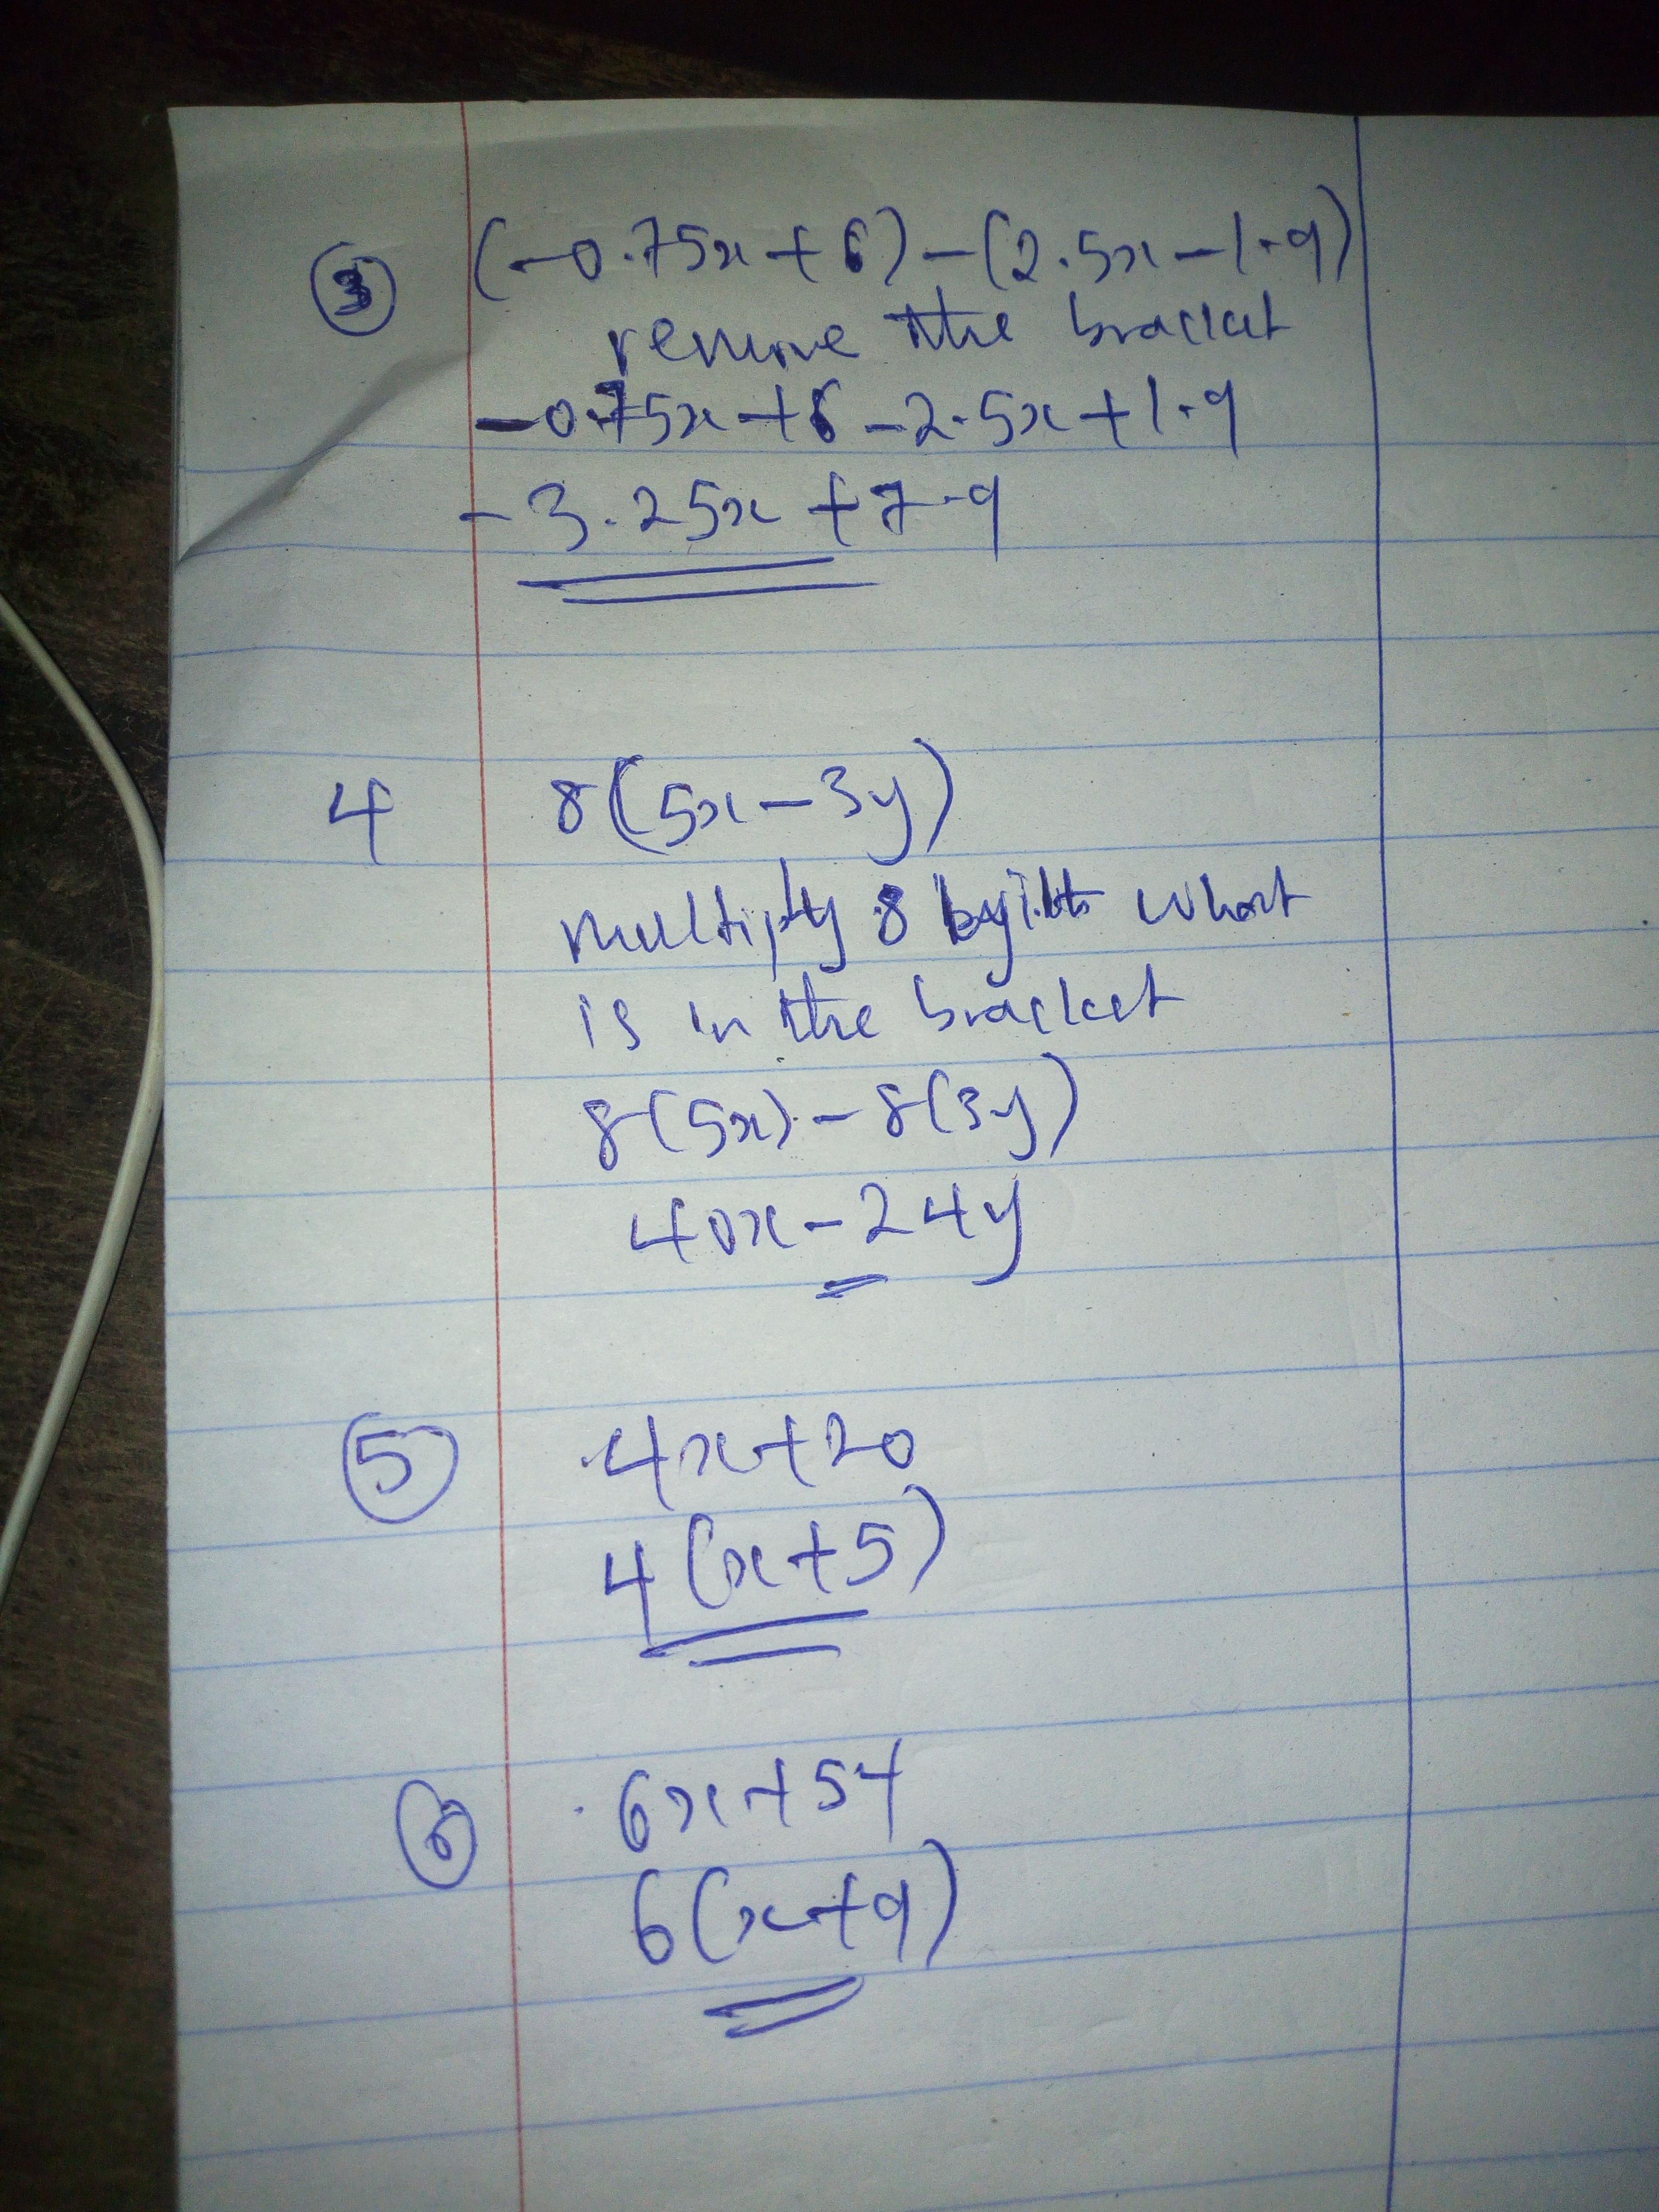 ③ (-0.75x+6)-(2.5x-1.9)
remove the bracket
-0.75x+6-2.5x+1.9
-3.25x+7.9
4 8(5x-3y)
multiply 8 by what
is in the bracket
8(5x)-8(3y)
40x-24y
⑤ 4x+20
4(x+5)
⑥ 6x+54
6(x+9)